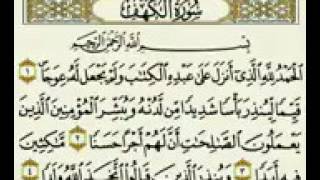 سُورَةُ الكَهْفِ
بِسْمِ اللَّهِ الرَّحْمَٰنِ الرَّحِيمِ
ٱلْحَمْدُ لِلَّهِ ٱلَّذِىٓ أَنزَلَ عَلَىٰ عَبْدِهِ ٱلْكِتَٰبَ وَلَمْ يَجْعَل لَّهُۥ عِوَجَا ۝١
قَيِّمًا لِّيُنذِرَ بَأْسًا شَدِيدًا مِّن لَّدُنْهُ وَيُبَشِّرَ ٱلْمُؤْمِنِينَ ٱلَّذِينَ
يَعْمَلُونَ ٱلصَّٰلِحَٰتِ أَنَّ لَهُمْ أَجْرًا حَسَنًا ۝٢ مَّٰكِثِينَ
فِيهِ أَبَدًا ۝٣ وَيُنذِرَ ٱلَّذِينَ قَالُوا۟ ٱتَّخَذَ ٱللَّهُ وَلَدًا ۝٤